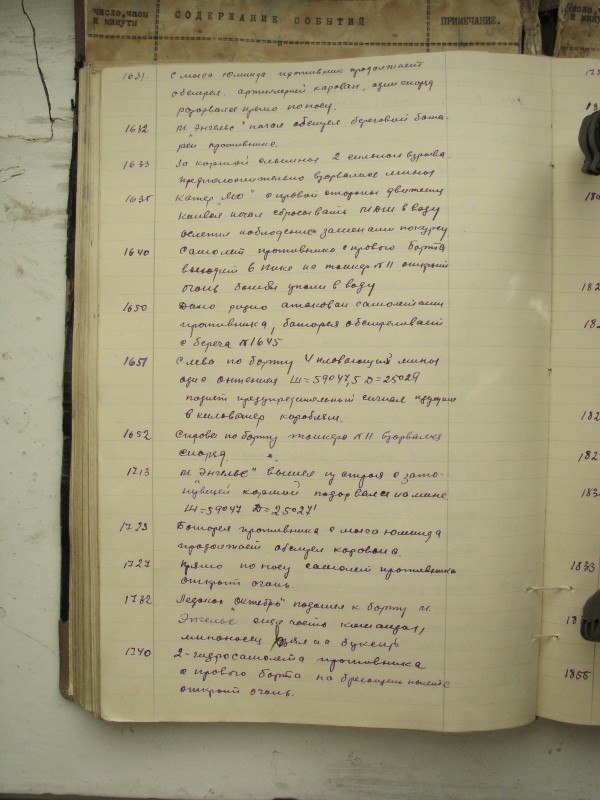 ЧИСЛО, ЧАСЫ И МИНУТЫ
СОДЕРЖАНИЕ СОБЫТИЙ
ПРИМЕЧАНИЕ.
1631. С мыса Юминда противник продолжает
обстрел артиллерией караван, один снаряд
разорвался прямо по носу.
1632 "Энгельс" начал обстрел береговой бата-
реи противника.
1633 За кормой слышны 2 сильных взрыва
предположительно взорвались мины
1635 Катер "МО" с правой стороны движения
начал сбрасывать в воду
1640 Самолет противника с правого борта
выходит в пике на танкер №11 открыт
огонь бомбы упали в воду
1650 Дано радио атакован самолетами
противника, батарея обстреливает
с берега №1645
1651 Слева по борту 4 плавающих мины
одна Ш=59047,5 D=25029
подает предупредительный сигнал идущим
в кильватер кораблям.
1652 Справа по борту танкера №11 взорвался
снаряд.
1713 "Энгельс" вышел из строя с зато-
нувшей кормой подорвался на мине
Ш=59047 D=25027'
Батарея противника с мыса Юминда
продолжает обстрел каравана.
1727 Прямо по носу самолет противника
открыт огонь.
1732 Ледокол "Октябрь" подошел к борту
Энгельс" команды,
миноносец взял на буксир
1740 2-гидросамолета противника
с правого борта на бреющем полете
открыт огонь.
1833
1855